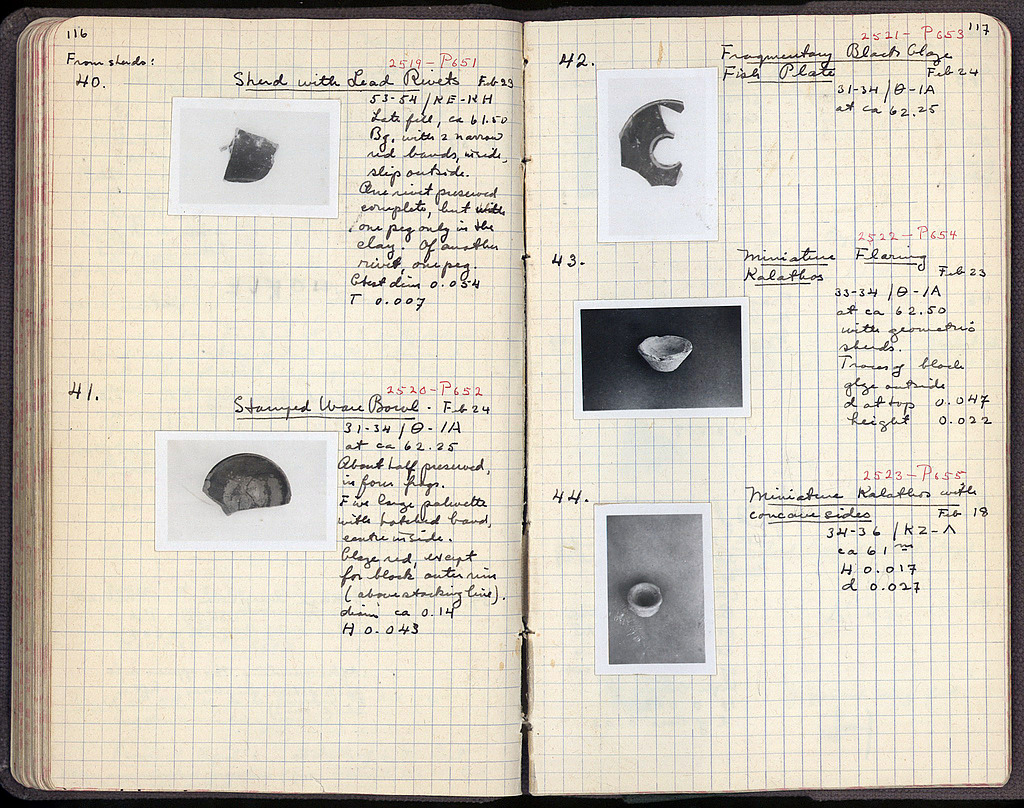 116
From sherds:
2519 - P651
40. Sherd with Lead Rivets Feb 23
53-54 / KE-KH
Late fill, ca 61.50
Bg. with 2 narrow
red bands, inside,
slip outside.
One rivet preserved
complete, but with
one peg only in the
clay. Of another
rivet, one peg.
Gtest dim 0.054
T 0.007
2520 - P652
41. Stamped Ware Bowl. Feb 24
31-34 / Θ-ΙΑ
at ca 62.25
About half preserved,
in four frags.
Five large palmettes
with hatched band,
centre inside.
Glaze red, except
for black outer rim
(above stacking line).
diam ca 0.14
H 0.043
117
2521 - P653
42. Fragmentary Black Glaze
Fish Plate Feb 24
31-34 / Θ-ΙΑ
at ca 62.25
2522 - P654
43. Miniature Flaring
Kalathos Feb 23
33-34 / Θ-ΙΑ
at ca 62.50
with geometric
sherds.
Traces of black
glaze outside
d at top 0.047
height 0.022
2523 - P655
44. Miniature Kalathos with
concave sides Feb 18
34-36 / KZ-Λ
ca 61 m
H 0.017
d 0.027